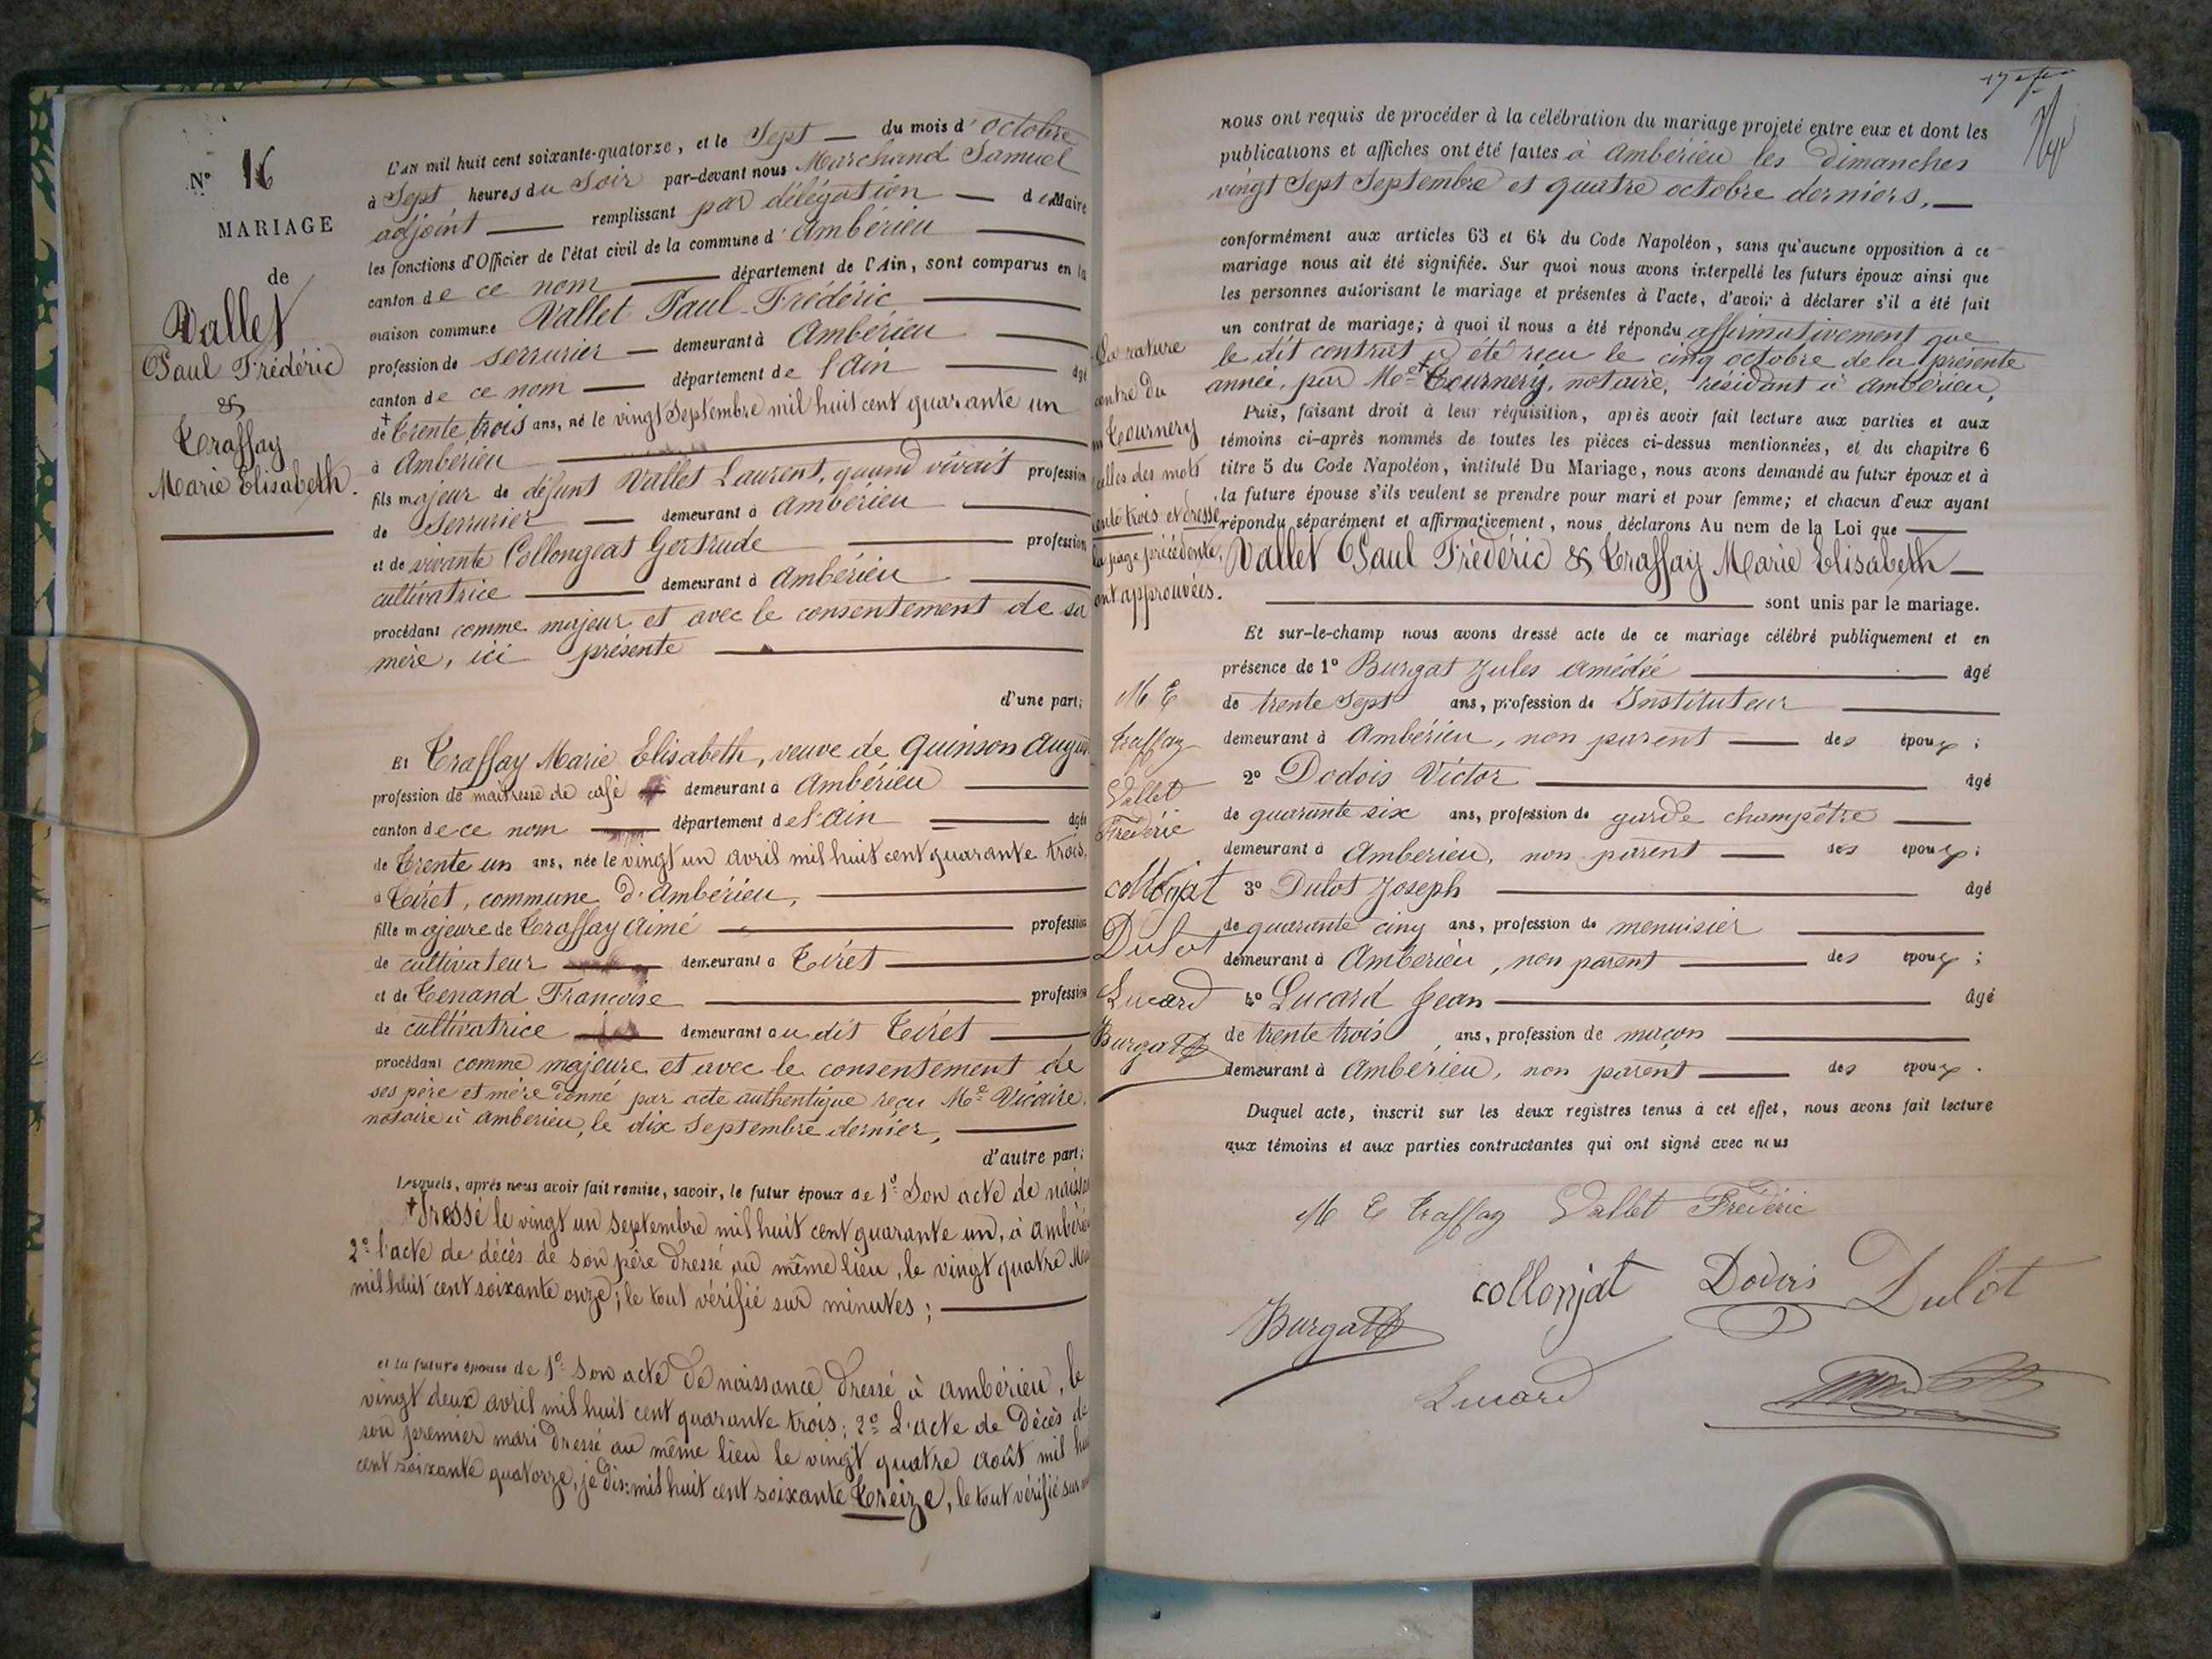 N° 16
MARIAGE
de
Vallet
Paul Frédéric
&
Traffay
Marie Elisabeth.
L'an mil huit cent soixante-quatorze, et le Sept du mois d'octobre
à Sept heures du Soir par-devant nous Marchand Samuel
adjoint remplissant par délégation de Maire
les fonctions d'Officier de l'état civil de la commune d'Ambérieu
canton de ce nom département de l'Ain, sont comparus en la
maison commune Vallet Paul Frédéric
profession de serrurier demeurant à Ambérieu
canton de ce nom département de l'Ain âgé
de + trente trois ans, né le vingt Septembre mil huit cent quarante un
à Ambérieu
fils majeur de défunt Vallet Laurent, quand vivait profession
de Serrurier demeurant à Ambérieu
et de vivante Collongeat Gertrude profession
cultivatrice demeurant à Ambérieu
procédant comme majeur et avec le consentement de sa
mère, ici présente
d'une part;
Et Traffay Marie Elisabeth, veuve de Quinson August
profession de maîtresse de café demeurant à Ambérieu
canton de ce nom département de l'Ain âgée
de Trente un ans, née le vingt un avril mil huit cent quarante trois,
à Tiret, commune d'Ambérieu,
fille majeure de Traffay Aimé profession
de cultivateur demeurant à Tiret
et de Tenand Françoise profession
de cultivatrice demeurant au dit Tiret
procédant comme majeure et avec le consentement de
ses père et mère donné par acte authentique reçu Me Vicaire,
notaire à Ambérieu, le dix Septembre dernier,
d'autre part;
Lesquels, après nous avoir fait remise, savoir, le futur époux de 1° Son acte de naissa
+ Dressé le vingt un septembre mil huit cent quarante un, à Ambérieu
2° l'acte de décès de son père dressé au même lieu, le vingt quatre
mil huit cent soixante onze; le tout vérifié sur minutes;
et la future épouse de 1° Son acte de naissance dressé à Ambérieu, le
vingt deux avril mil huit cent quarante trois; 2° L'acte de Décès de
son premier mari dressé au même lieu le vingt quatre août mil huit
cent soixante quatorze, je dis: mil huit cent soixante Treize, le tout vérifié sur
nous ont requis de procéder à la célébration du mariage projeté entre eux et dont les
publications et affiches ont été faites à Ambérieu les dimanches
vingt Sept Septembre et quatre octobre derniers,
conformément aux articles 63 et 64 du Code Napoléon, sans qu'aucune opposition à ce
mariage nous ait été signifiée. Sur quoi nous avons interpellé les futurs époux ainsi que
les personnes autorisant le mariage et présentes à l'acte, d'avoir à déclarer s'il a été fait
un contrat de mariage; à quoi il nous a été répondu affirmativement que
le dit contrat a été reçu le cinq octobre de la présente
année, par Me + Tournery, notaire, résidant à Ambérieu,
Puis, faisant droit à leur réquisition, après avoir fait lecture aux parties et aux
témoins ci-après nommés de toutes les pièces ci-dessus mentionnées, et du chapitre 6
titre 5 du Code Napoléon, intitulé Du Mariage, nous avons demandé au futur époux et à
la future épouse s'ils veulent se prendre pour mari et pour femme; et chacun d'eux ayant
répondu séparément et affirmativement, nous déclarons Au nom de la Loi que
Vallet Paul Frédéric & Traffay Marie Elisabeth
sont unis par le mariage.
Et sur-le-champ nous avons dressé acte de ce mariage célébré publiquement et en
présence de 1° Burgat Jules Amédée âgé
de trente Sept ans, profession de Instituteur
demeurant à Ambérieu, non parent des époux;
2° Dodois Victor âgé
de quarante six ans, profession de garde champêtre
demeurant à Ambérieu, non parent des époux;
3° Dulot Joseph âgé
de quarante cinq ans, profession de menuisier
demeurant à Ambérieu, non parent des époux;
4° Lucard Jean âgé
de trente trois ans, profession de maçon
demeurant à Ambérieu, non parent des époux.
Duquel acte, inscrit sur les deux registres tenus à cet effet, nous avons fait lecture
aux témoins et aux parties contractantes qui ont signé avec nous
La rature
contre du
Tournery
celles des mots
trente trois et dressé
la page précédente,
ont approuvées.
M E
Traffay
Vallet
Frédéric
collonjat
Dulot
Lucard
Burgat
M E Traffay Vallet Frédéric
collonjat Dodois Dulot
Burgat
Lucard